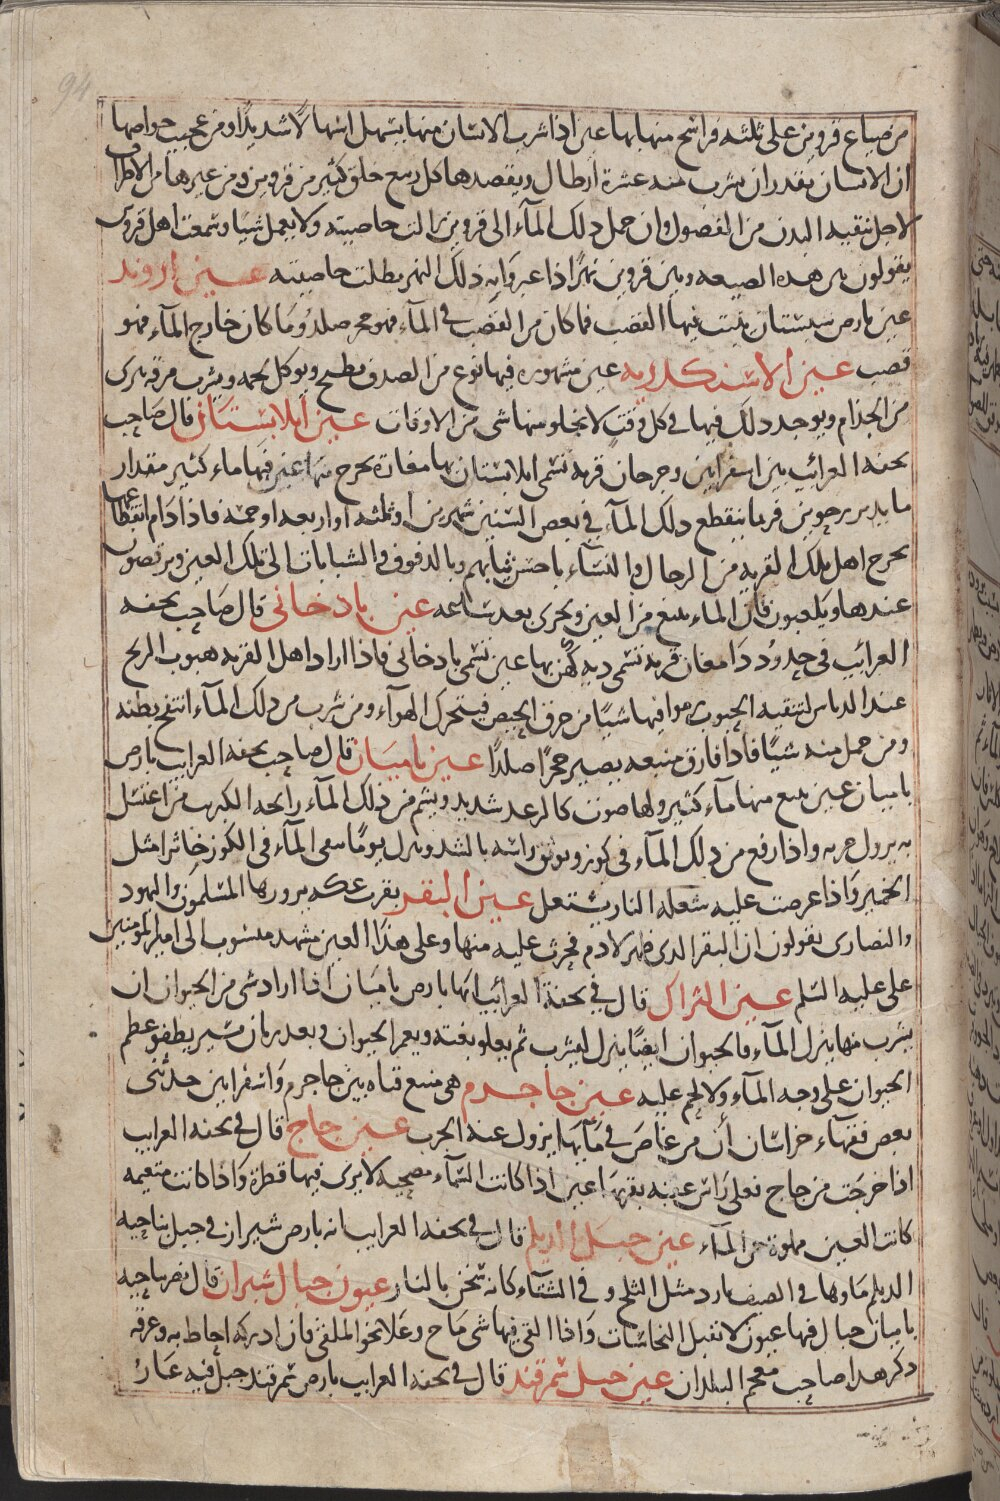 94
من ضياع قزوين على ثلثه فراسخ منها بها عين اذا شرب الانسان منها يسهل اسهالا شديدا ومن عجيب خواصها
ان الانسان يقدر ان يشرب منه عشرة ارطال ويقصدها كل ربيع خلق كثير من قزوين ومن غيرها من الاطراف
لاجل تنقيه البدن من الفضول وان حمل ذلك المآء الى قزوين زالت خاصيته ولا يعمل شيا وسمعت اهل قزوين
يقولون بين هذه الضيعه وبين قزوين نهرا اذا عبر وا به ذلك النهر بطلت خاصيته عين اروند
عين بارض سيستان ينبت فيها القصب فما كان من القصب في المآء فهو حجر صلد وما كان خارج المآء فهو
قصب عين الاسكندريه عين مشهوره فيها نوع من الصدف يطبخ ويوكل لحمه ويشرب مرقه يبرى
من الجذام ويوجد ذلك فيها في كل وقت لا يخلو منها شى من الاوقات عين ايلابستان قال صاحب
تحفه الغرائب بين اسفراين وجرجان قريه تسمى ايلابستان بها مغاره يخرج منها عين فيها ماء كثير مقدار
ما يدير رحوين فربما ينقطع ذلك المآء في بعض السنين شهرين او ثلثه او اربعه او خمسه فاذا دام انقطاعها
يخرج اهل تلك القريه من الرجال والنسآء باحسن ثيابهم وبالدفوف والشبابات الى تلك العين ويرقصون
عندها ويلعبون فان الماء ينبع من العين ويجرى بعد ساعه عين باذخانى قال صاحب تحفه
الغرائب في حدود دامغان قريه تسمى ديه كهن بها عين تسمى باذخانى فاذا اراد اهل القريه هبوب الريح
عند الدياس لتنقيه الحبوب رموا فيها شيا من خرق الحيض فيتحرك الهوآء ومن شرب من ذلك المآء انتفخ بطنه
ومن حمل منه شيا فاذا فارق منبعه يصير حجرا صلدا عين باميان قال صاحب تحفه الغرايب بارض
باميان عين ينبع منها مآء كثير ولها صوت كالرعد شديد ويشم من ذلك المآء رايحه الكبريت من اغتسل
به يزول جربه واذا رفع من ذلك المآء في كوز ويوثق راسه بالشد وينزل يوما يبقى المآء في الكوز خاثرا مثل
الخمير واذا عرضت عليه شعله النار يشتعل عين البقر بقرب عكه يزورها المسلمون واليهود
والنصارى يقولون ان البقر الذى ظهر لادم فحرث عليه منها وعلى هذا العين مشهد منسوب الى امير المومنين
على عليه السلم عين التراك قال في تحفة الغرائب انها بارض باميان اذا اراد شى من الحيوان ان
يشرب منها ينزل المآء فالحيوان ايضا ينزل ليشرب ثم يعلو بغتة ويعم الحيوان وبعد زمان يسير يطفو عظم
الحيوان على وجه المآء ولا لحم عليه عين جاجرم هى منبع قناه بين جاجرم واسفراين حدثنى
بعض فقهاء خراسان ان من غاص في مآيها يزول عنه الجرب عين جاج قال في تحفه الغرايب
اذا خرجت من جاج فعلى راس عقبه بقربها عين اذا كانت السمآء مصحيه لا يرى فيها قطرة واذا كانت متغيمه
كانت العين مملوة من المآء عين جبل الديلم قال في تحفه الغرايب انه بارض شيراز في جبل بناحيه
الديلم ماوها في الصيف بارد مثل الثلج وفي الشتآء كانه سخن بالنار عيون جبال شيران قال بناحيه
باميان جبال فيها عيون لا تقبل النجاسات واذا القى فيها شى ماج وغلا نحو الملقى فان ادركه احاط به وغرقه
ذكر هذا صاحب معجم البلدان عين جبل سمرقند قال في تحفه الغرايب بارض سمرقند جبل فيه غار